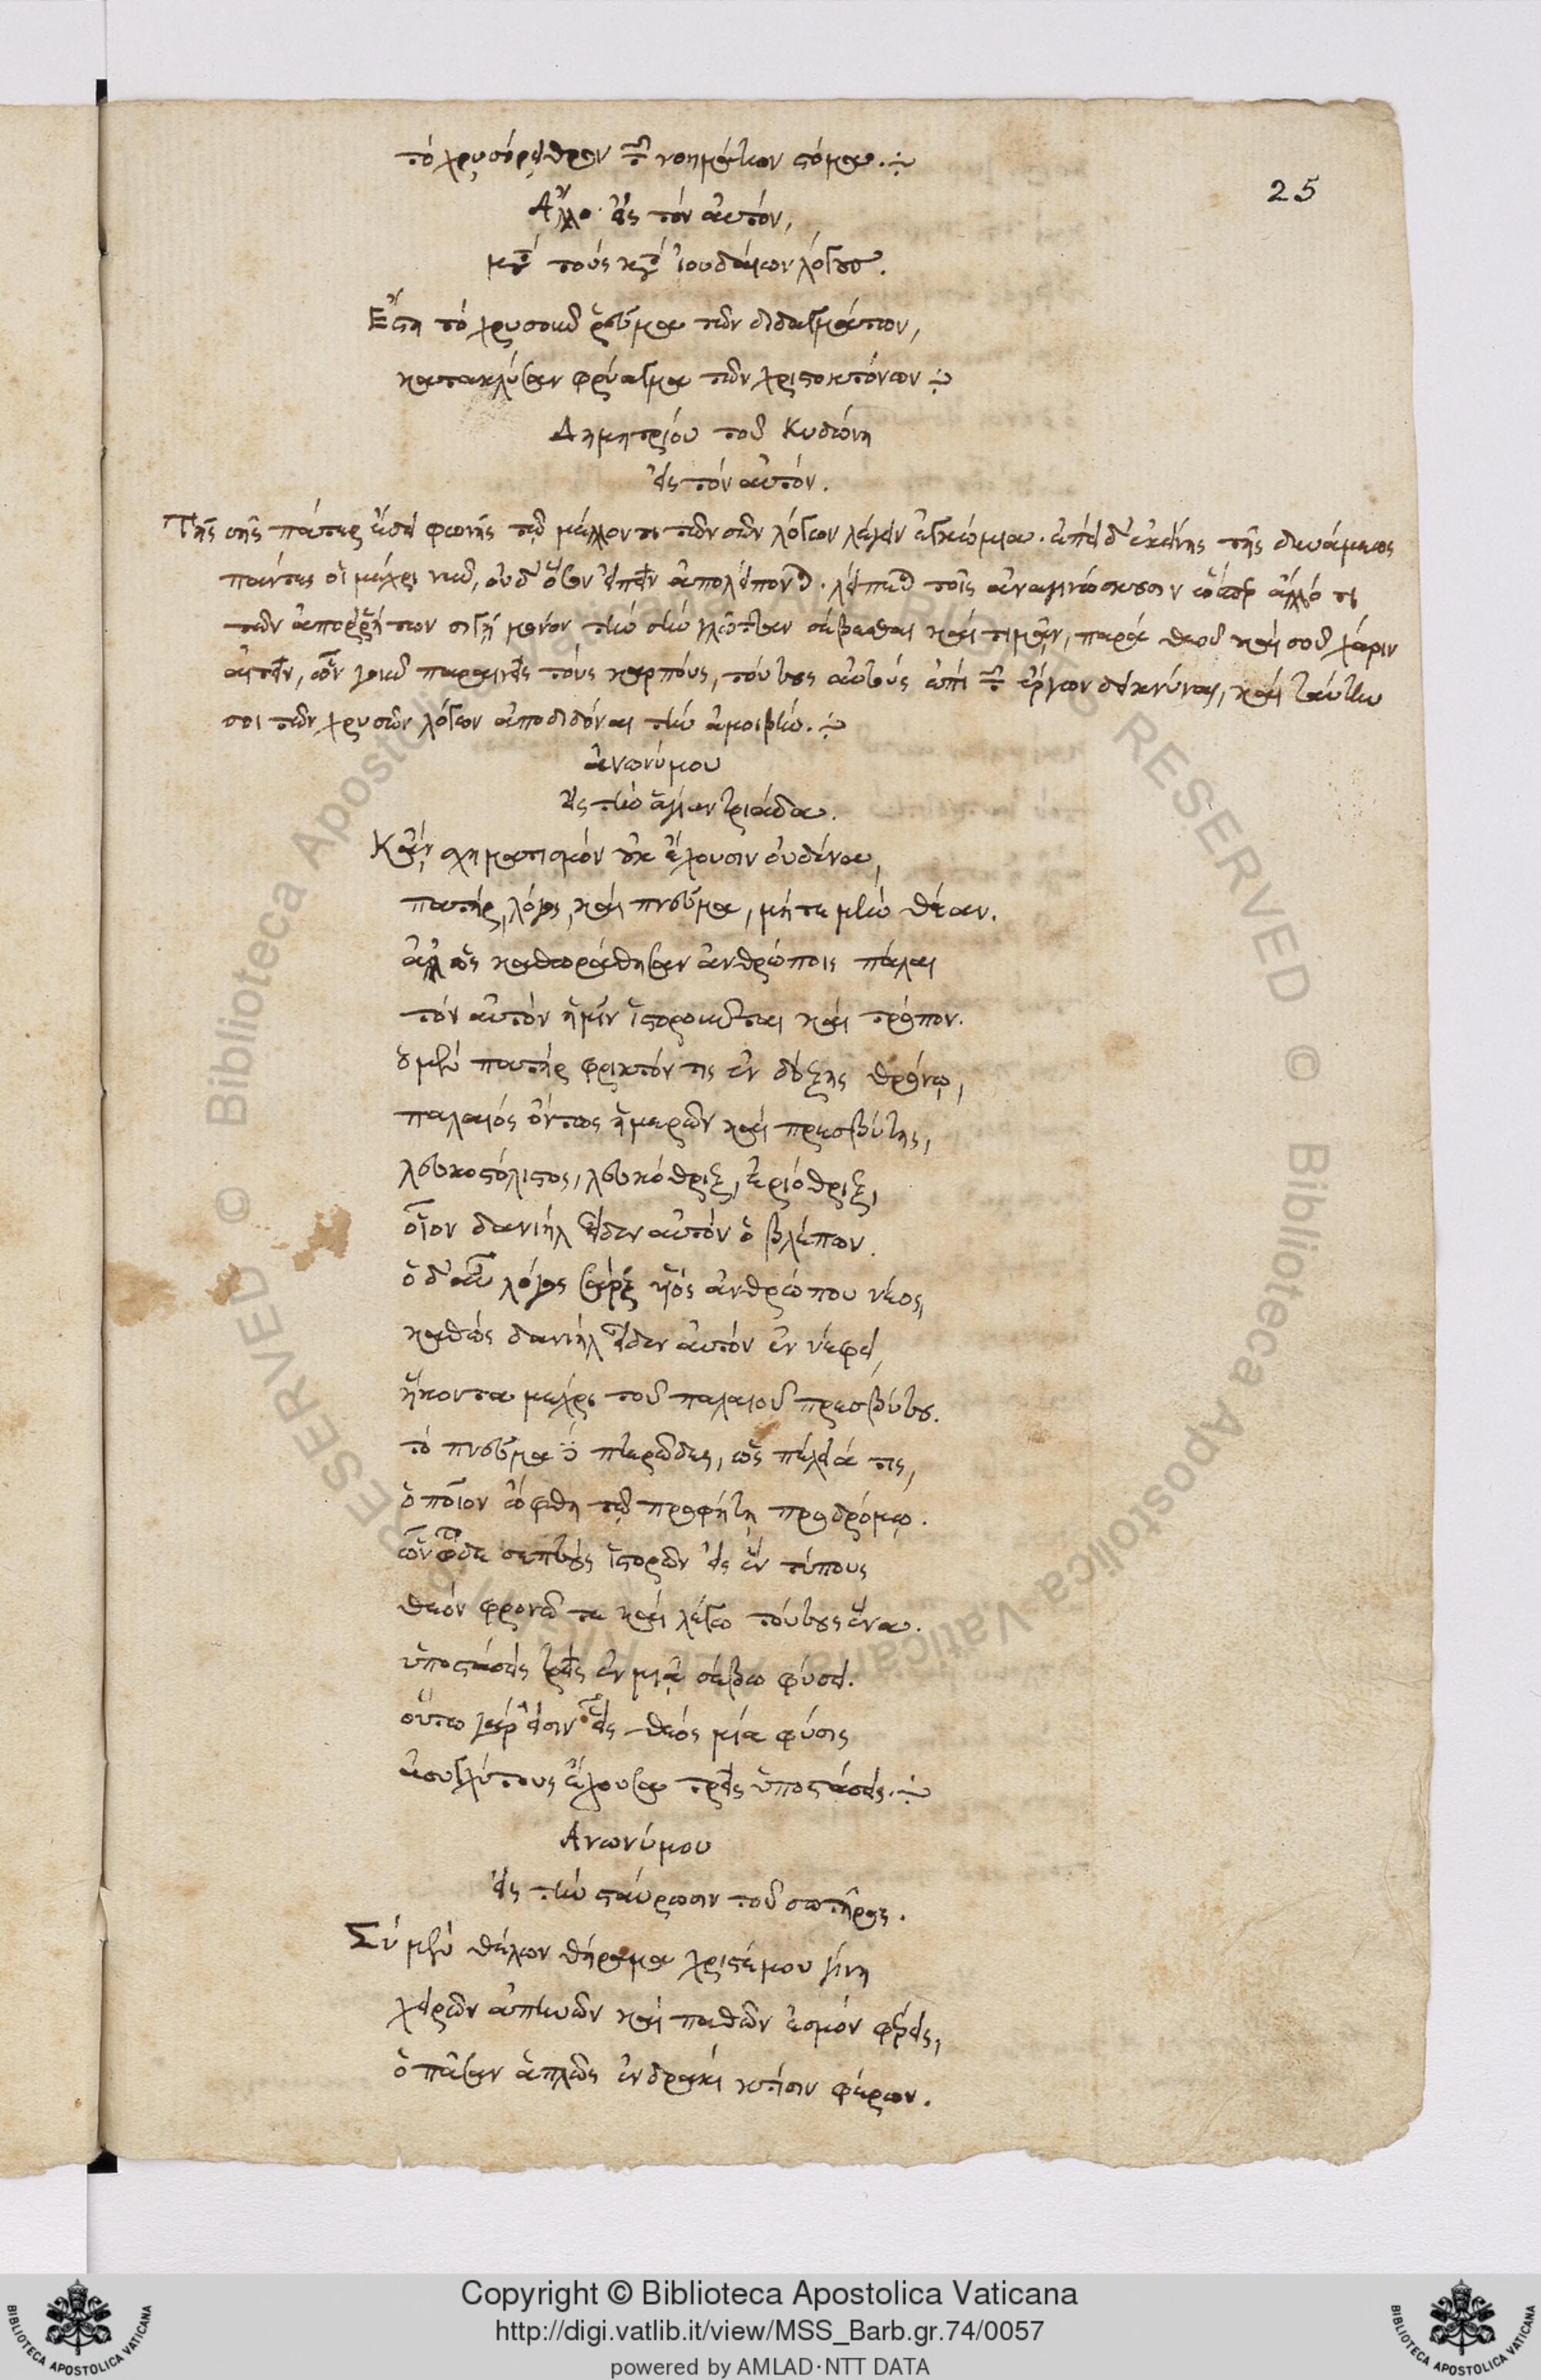 τὸ χρυσορεῖθρον τῶν νοημάτων στόμα.
25
Ἄλλο εἰς τὸν αὐτόν,
μετὰ τοὺς κατὰ ἰουδαίων λόγους.
Ἔστη τὸ χρυσοῦν ῥεῦμα τῶν διδαγμάτων,
κατακλύσαν φρύαγμα τῶν χριστοκτόνων
Δημητρίου τοῦ Κυδώνη
εἰς τὸν αὐτόν.
Τῆς σῆς πάτερ ἔδει φωνῆς τῷ μέλλοντι τῶν σῶν λόγων λέγειν ἐγκώμια. ἐπεὶ δ' ἐκείνης τῆς δυνάμεως
πάντες οἱ μέχρι νῦν, οὐδ' ὅσον εἰπεῖν ἀπολείπονται. λείπεται τοῖς ἀναγινώσκουσιν ὥσπερ ἄλλό τι
τῶν ἀπορρήτων σιγῇ μόνον τὴν σὴν γλῶτταν σέβεσθαι καὶ τιμᾶν, παρὰ θεοῦ καὶ σοῦ χάριν
αἰτεῖν, ὧν γοῦν παραινεῖς τοὺς καρπούς, τούτους αὐτοὺς ἐπὶ τῶν ἔργων δεικνύναι, καὶ ταύτην
σοι τῶν χρυσῶν λόγων ἀποδιδόναι τὴν ἀμοιβήν.
ἀνωνύμου
εἰς τὴν ἁγίαν τριάδα.
Κἂν σχηματισμὸν οὐκ ἔχουσιν οὐδένα,
πατὴρ, λόγος, καὶ πνεῦμα, μήτε μὴν θέαν.
ἀλλ' ὡς καθωράθησαν ἀνθρώποις πάλαι
τὸν αὐτὸν ἡμῖν ἱστοροῦνται καὶ τρόπον.
ὁ μὲν πατὴρ φρικτόν τις ἐν δόξης θρόνῳ,
παλαιὸς ὄντως ἡμερῶν καὶ πρεσβύτης,
λευκοστόλιστος, λευκόθριξ, ἐριόθριξ,
οἷον δανιὴλ εἶδεν αὐτὸν ὁ βλέπων.
ὁ δ' αὖ λόγος σὰρξ υἱὸς ἀνθρώπου νέος,
καθὼς δανιὴλ εἶδεν αὐτὸν ἐν νέφει,
ἥκοντα μέχρι τοῦ παλαιοῦ πρεσβύτου.
τὸ πνεῦμα πτερῶδες, ὡς πέλειά τις,
ὁποῖον ὤφθη τῷ προφήτῃ προδρόμῳ.
ὧν ὧδε σεπτοὺς ἱστορῶν εἰς ἓν τύπους
θεὸν φρονῶ τε καὶ λέγω τούτους ἕνα.
ὑποστάσεις τρεῖς ἐν μιᾷ σέβω φύσει.
οὕτω γάρ εἰσιν εἷς θεὸς μία φύσις
ἀσυγχύτους ἔχουσα τρεῖς ὑποστάσεις.
Ἀνωνύμου
εἰς τὴν σταύρωσιν τοῦ σωτῆρος.
Σὺ μὲν θέλων θήραμα χριστέ μου γίνῃ
χειρῶν ἀπηνῶν καὶ παθῶν ἑσμὸν φέρεις,
ὁ πᾶσαν ἁπλῶς ἐν δρακὶ κτίσιν φέρων.
Copyright © Biblioteca Apostolica Vaticana
http://digi.vatlib.it/view/MSS_Barb.gr.74/0057
powered by AMLAD·NTT DATA